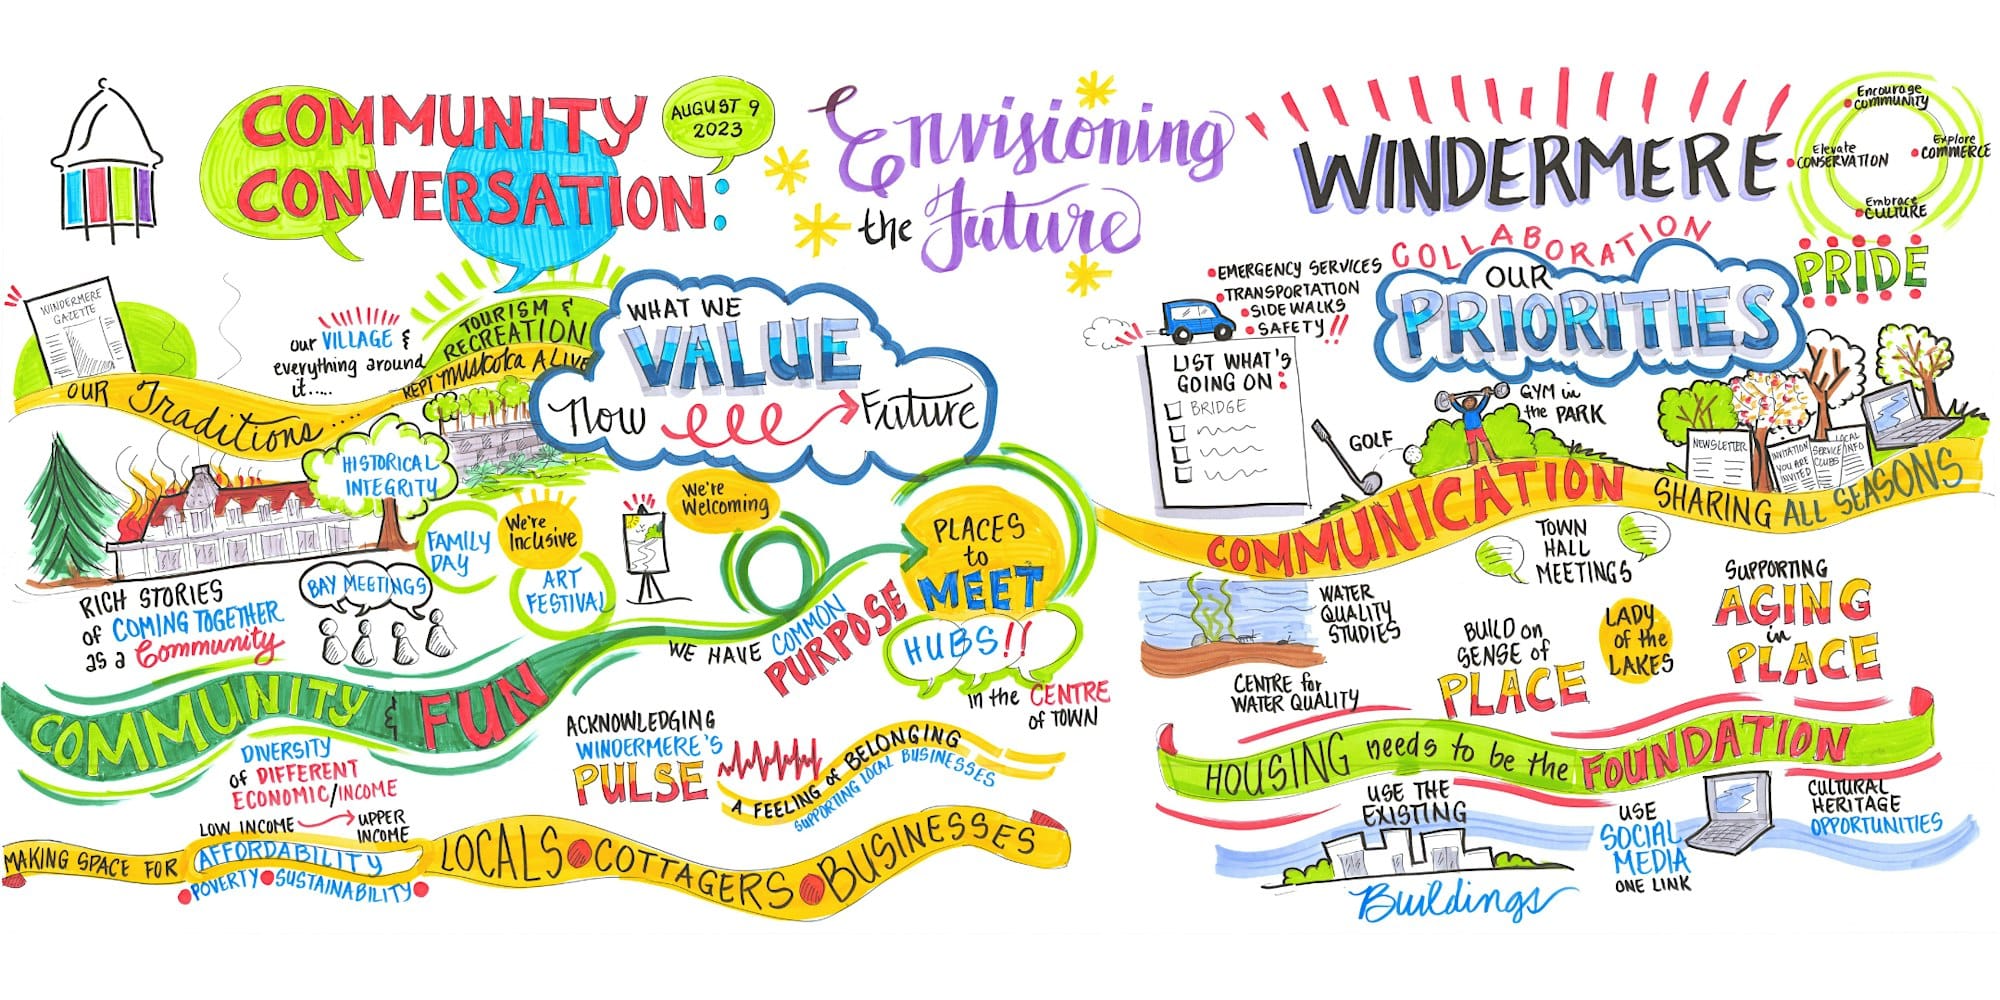 COMMUNITY
CONVERSATION:
AUGUST 9
2023
Envisioning
the Future
WINDERMERE
Encourage
COMMUNITY
Explore
COMMERCE
Elevate
CONSERVATION
Embrace
CULTURE
PRIDE
WINDERMERE
GAZETTE
OUR Traditions...
our VILLAGE &
everything around
it.....
TOURISM &
RECREATION
KEPT muskoka ALIVE
WHAT WE
VALUE
Now
Future
HISTORICAL
INTEGRITY
FAMILY
DAY
We're
Inclusive
ART
FESTIVAL
We're
Welcoming
BAY MEETINGS
RICH STORIES
of COMING TOGETHER
as a Community
PLACES
to
MEET
HUBS!!
in the CENTRE
of TOWN
WE HAVE COMMON
PURPOSE
COMMUNITY & FUN
DIVERSITY
of DIFFERENT
ECONOMIC/INCOME
LOW INCOME
UPPER
INCOME
ACKNOWLEDGING
WINDERMERE'S
PULSE
A FEELING of BELONGING
SUPPORTING LOCAL BUSINESSES
MAKING SPACE FOR
AFFORDABILITY
POVERTY SUSTAINABILITY
LOCALS COTTAGERS BUSINESSES
COLLABORATION
OUR
PRIORITIES
EMERGENCY SERVICES
TRANSPORTATION
SIDE WALKS
SAFETY!!
LIST WHAT'S
GOING ON:
BRIDGE
GOLF
GYM in
the PARK
NEWSLETTER
INVITATION
YOU ARE
INVITED
SERVICE
CLUBS
LOCAL
INFO
COMMUNICATION
SHARING ALL SEASONS
TOWN
HALL
MEETINGS
WATER
QUALITY
STUDIES
CENTRE for
WATER QUALITY
BUILD on
SENSE of
PLACE
LADY
of the
LAKES
SUPPORTING
AGING
in
PLACE
HOUSING needs to be the FOUNDATION
USE THE
EXISTING
Buildings
USE
SOCIAL
MEDIA
ONE LINK
CULTURAL
HERITAGE
OPPORTUNITIES